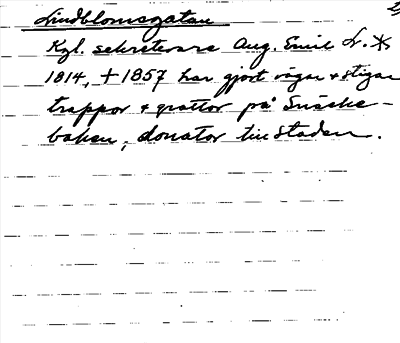 Lindblomsgatan
Kgl. sekreterare Aug. Emil L. *
1814, + 1857 har gjort vägar & stigar
trappor & grottor på Snäcke-
backen, donator till staden.